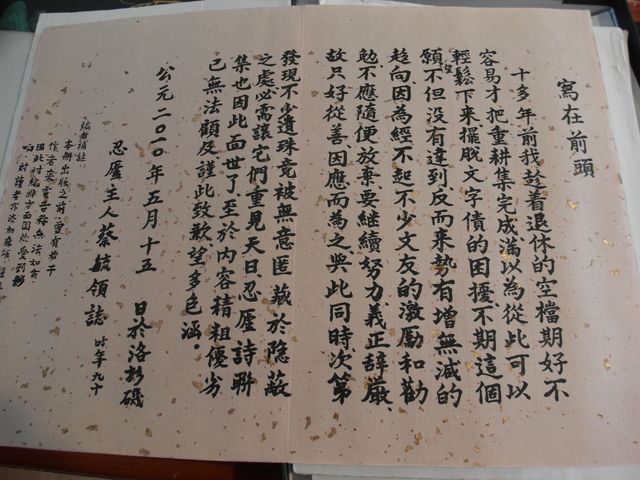 寫在前頭
十多年前我趁着退休的空檔期好不
容易才把重耕集完成滿以為從此可以
輕鬆下來擺脫文字債的困擾不期這個
願望不但沒有達到反而來勢有增無減的
趋向因為經不起不少文友的激勵和勸
勉不應隨便放棄要繼續努力義正辭嚴
故只好從善因應而為之與此同時次第
發現不少遺珠竟被無意匿藏於隐蔽
之處必需讓它們重見天日忍廬詩聯
集也因此面世了至於內容精粗優劣
已無法顧及謹此致歉望多包涵。
公元二〇二〇年五月十五日於洛杉磯
忍廬主人蔡毓領誌 时年九十
編者補註
本冊出版之前曾有若干